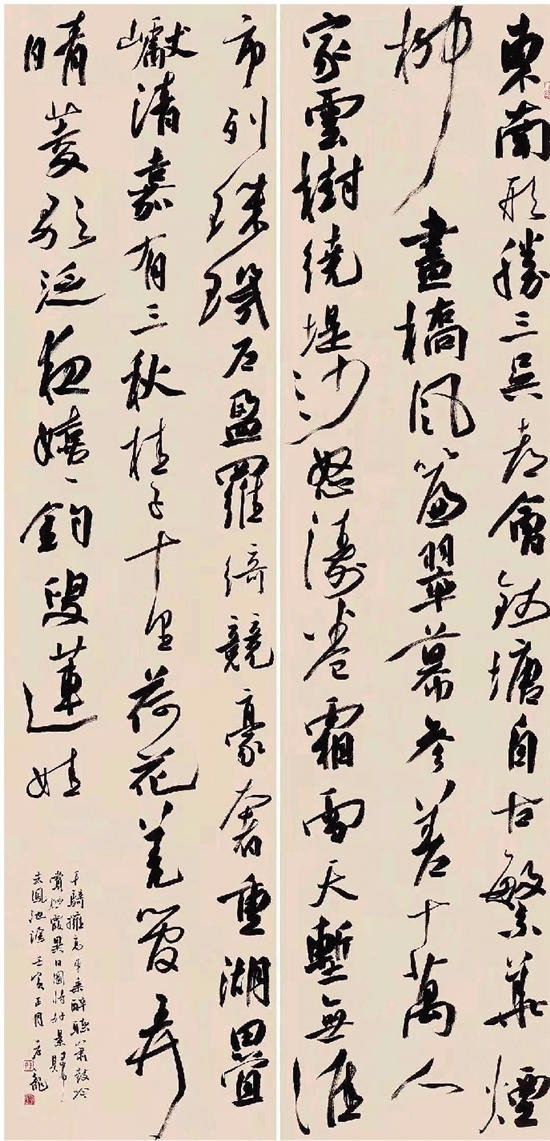 東南形勝三吳都會錢塘自古繁華煙
柳畫橋風簾翠幕參差十萬人
家雲樹繞堤沙怒濤卷霜雪天塹無涯
市列珠璣戶盈羅綺競豪奢重湖疊
巘清嘉有三秋桂子十里荷花羌管弄
晴菱歌泛夜嬉々釣叟蓮娃
千騎擁高牙乘醉聽簫鼓吟
賞煙霞異日圖將好景歸
去鳳池誇壬寅正月龍